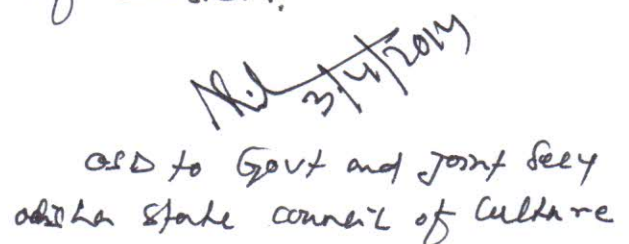 of
3/4/2014
OSD to Govt and Joint Secy
odisha State council of Culture